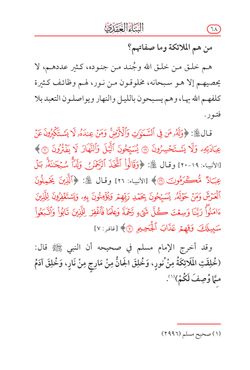 ٦٨
البناء العقدي
من هم الملائكة وما صفاتهم؟
هم خلق من خلق الله وجُند من جنوده، كثير عددهم، لا
يحصيهم إلا هو سبحانه، مخلوقون من نور، لهم وظائف كثيرة
كلفهم الله بها، وهم يسبحون بالليل والنهار ويواصلون التعبد بلا
فتور.
قال ﷻ: ﴿وَلَهُ مَن فِي السَّمَوَتِ وَالْأَرْضِ وَمَنْ عِندَهُ لَا يَسْتَكْبِرُونَ عَنْ
عِبَادَتِهِ وَلَا يَسْتَحْسِرُونَ ۝ يُسَبِّحُونَ الَّيْلَ وَالنَّهَارَ لَا يَفْتُرُونَ ۝﴾
[الأنبياء: ١٩-٢٠] وقال ﷻ: ﴿وَقَالُوا اتَّخَذَ الرَّحْمَنُ وَلَدًا سُبْحَنَهُ بَلْ
عِبَادٌ مُّكْرَمُونَ ۝﴾ [الأنبياء: ٢٦] وقال ﷻ: ﴿الَّذِينَ يَحْمِلُونَ
الْعَرْشَ وَمَنْ حَوْلَهُ يُسَبِّحُونَ بِحَمْدِ رَبِّهِمْ وَيُؤْمِنُونَ بِهِ وَيَسْتَغْفِرُونَ لِلَّذِينَ
ءَامَنُوا رَبَّنَا وَسِعْتَ كُلَّ شَيْءٍ رَّحْمَةً وَعِلْمًا فَاغْفِرْ لِلَّذِينَ تَابُوا وَاتَّبَعُوا
سَبِيلَكَ وَقِهِمْ عَذَابَ الْجَحِيمِ ۝﴾ [غافر: ٧]
وقد أخرج الإمام مسلم في صحيحه أن النبي ﷺ قال:
(خُلِقَتِ الْمَلَائِكَةُ مِنْ نُورٍ، وَخُلِقَ الْجَانُّ مِنْ مَارِجٍ مِنْ نَارٍ، وَخُلِقَ آدَمُ
مِمَّا وُصِفَ لَكُمْ)(١).
(١) صحيح مسلم (٢٩٩٦)